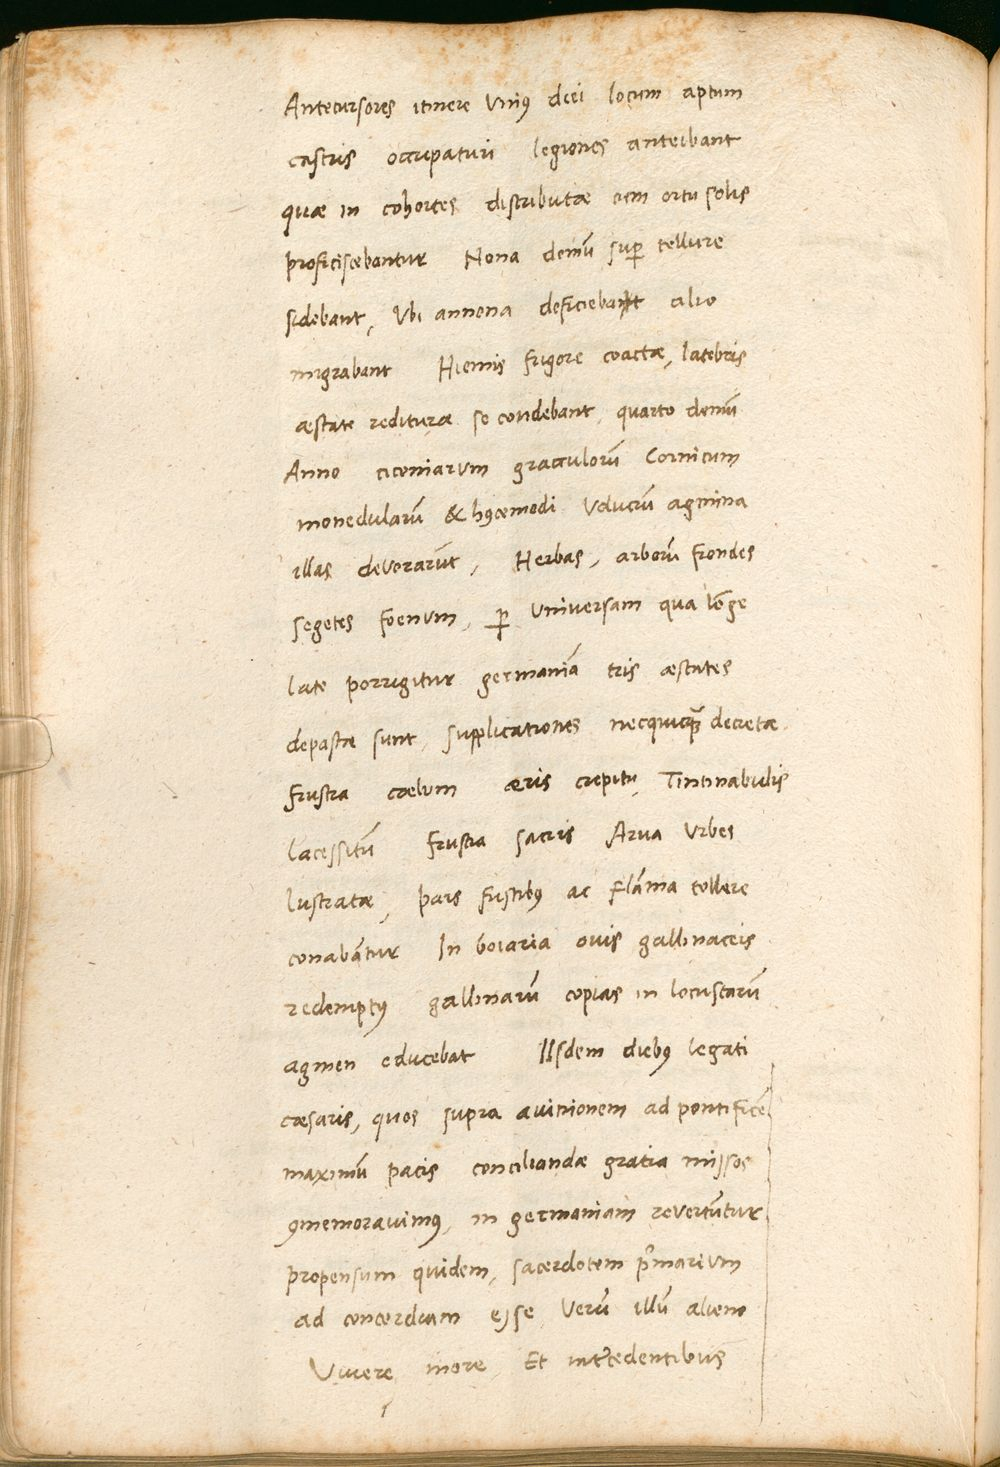 Antecursores itinere Vniꝰ diei locum aptum
castris occupaturi legiones anteibant
quæ in cohortes distributæ cum ortu solis
proficiscebantur Nona demū suꝑ tellure
sidebant, Vbi annona deficiebant alio
migrabant Hiemis frigore coactæ, latebris
æstate redituræ se condebant, quarto demū
Anno ciconiarum gracculorū Cornicum
monedularū & hꝰcemodi Volucrū agmina
illas deVorarūt, Herbas, arborū frondes
segetes foenum, ꝑ Vniversam qua lōge
late porrigitur germania tris æstates
depastæ sunt, supplicationes necquicꝗ̃ decretæ
frustra cælum æris crepitu, Tintinabulis
lacessitū frustra sacris Arva Vrbes
lustratæ, pars fustibꝰ ac flāma tollere
conabātur In boiaria ovis gallinaceis
redemptꝰ gallinarū copias in locustarū
agmen educebat IIsdem diebꝰ legati
cæsaris, quos supra avinionem ad pontificē
maximū pacis conciliandæ gratia missos
ꝯmemoravimꝰ, in germaniam revertūtur
propensum quidem, sacerdotem pͥmarium
ad concordiam esse Verū illū alieno
Vivere more, Et intercedentibus